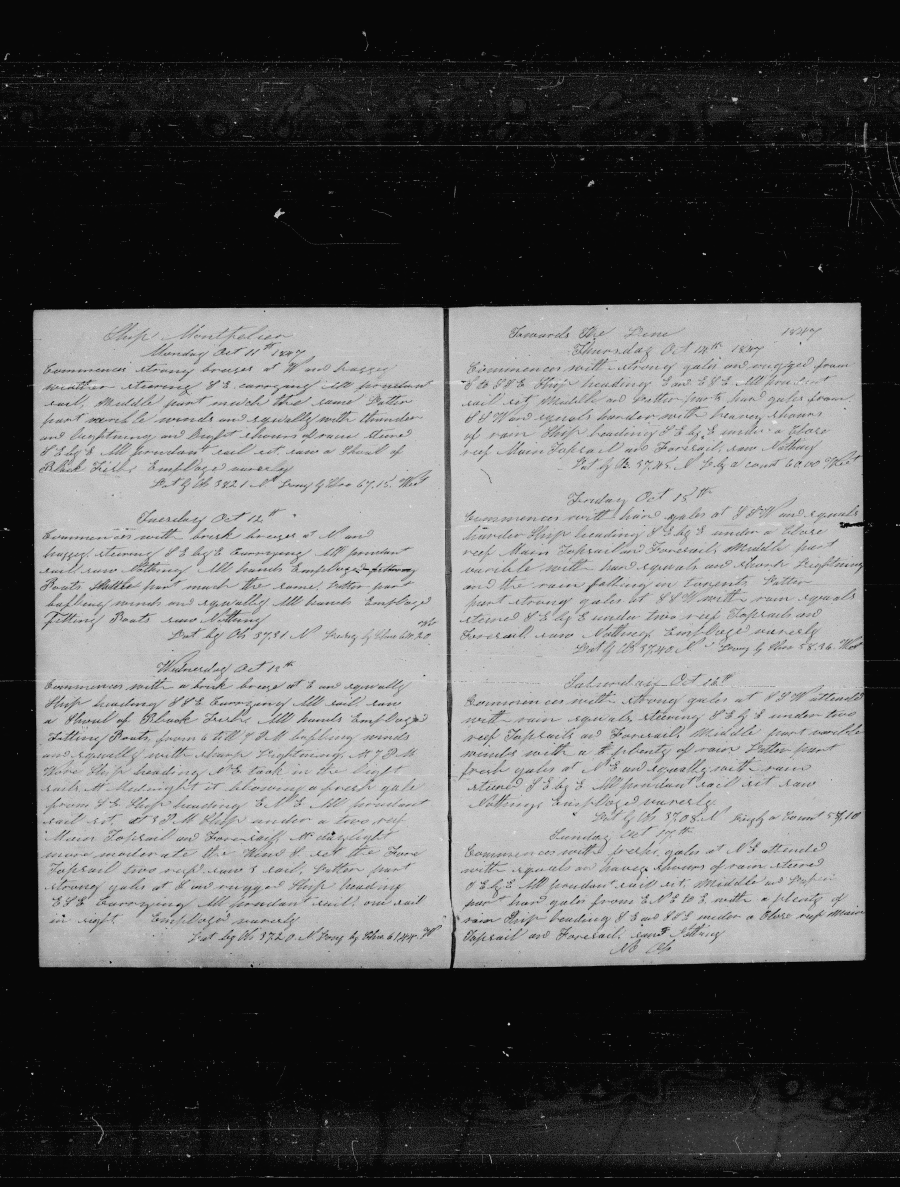 Ship Montpelier
Monday Oct 11th 1847
Commences strong breeses at W and haggy
weather steering S E carrying All prendant
sail, Middle part much the same Latter
part varible winds and squally with thunder
and lightning and Druft shours of rain steerd
S E by E All prendant sail set saw a Shoal of
Black Fisch Employed varerly
Lat by Ob 38.21 N Long by Chro 67.15. West
Tuesday Oct 12th
Commences with brisk breese at N and
haggy steering S E by E Carrying All prudant
sail saw Nothing All hands Employed
Boats Middle part much the same Latter part
bafling winds and squally All hands Employed
Fitting Boats saw Nothing
Lat by Ob 37.31 N Long by Chro
Wednesday Oct 13th
Commences with a brisk breeze at E and squally
Ship heading S S E Carrying All sail saw
a Shoal of Black Fisch All hands Employed
Fitting Boats, from 6 till 9 P M bafling winds
and squally with sharp Lightning. At 9 P M
Wore Ship heading N E took in the light
sails At Midnight it blowing a fresh gale
from S E Ship heading E N E All prendant
sail set, at 3 P M Ship under a two reef
Main Topsail and Foresail, At daylight
more moderate the Wind S set the Fore
Topsail two reef saw 3 sail, Latter part
strong gales at S and rugged Ship heading
E S E Carrying All prendant sail, one sail
in sight Employed varerly
Lat by Ob 37.20 N Long by Chro 61.44 W
Towards The Line 1847
Thursday Oct 14th 1847
Commences with strong gales and ruged from
S to S S E Ship heading E and E S E All prudant
sail set, Middle and Latter parts hard gales from
S S W and squals harder with heavey shours
of rain Ship heading S E by E under a Close
reef Main Topsail and Foresail, saw Nothing
Lat by Ob 37.45 N Lo by a count 60.00 West
Friday Oct 15th
Commences with hard gales at S S W and squals
harder Ship heading S E by E under a Close
reef Main Topsail and Foresail, Middle part
varible with hard squals and sharp Lightning
and the rain falling in torents Latter
part strong gales at S S W with rain squals
steerd S E by E under two reef Topsails and
Foresail saw Nothing Employed varerly
Lat by Ob 37.40 N Long by Chro 58.36 West
Saturday Oct 16th
Commences with strong gales at S S W attended
with rain squals, steering S E by E under two
reef Topsails and Foresail, Middle part varible
winds with a plenty of rain Latter part
fresh gales at N E and squally with rain
steerd S E by E All prudant sail set saw
Nothing Employed varerly
Lat by Ob 37.08 N Long by a Count 58.10
Sunday Oct 17th
Commences with fresh gales at N E attended
with squals and heavey shours of rain steerd
S E by E All prudant sail set, Middle and Latter
part hard gales from E N E to E with a plenty of
rain Ship heading S E and S S E under a Close reef Main
Topsail and Foresail, saw Nothing
No Ob